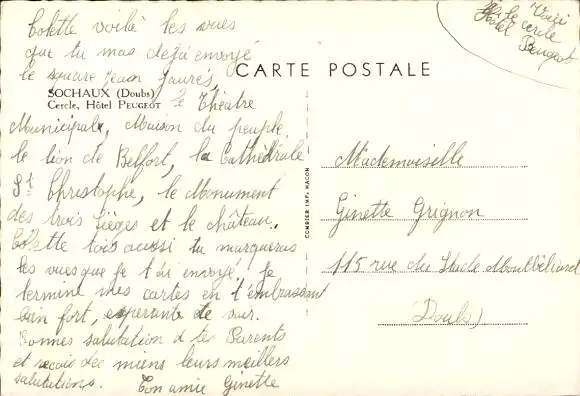 Colette voilà les vues
que tu mas dejà envoyé
le square Jean Jaurés,
le Théatre
Municipale, Maison du peuple,
le lion de Belfort, la Cathédrale
St Christophe, le Monument
des trois Sièges et le château.
Colette tois aussi tu marqueras
les vues que je t'ai envoyé. Je
termine mes cartes en t'embrassant
bien fort, esperante de voir.
Bonnes salutation à tes Parents
et reçois des miens leurs meillers
salutations. Ton amie Ginette
SOCHAUX (Doubs)
Cercle, Hôtel PEUGEOT
CARTE POSTALE
COMBIER IMP. MACON
Voici
le cercle
Hôtel Peugeot
Mademoiselle
Ginette Grignon
115 rue du Stade Montbéliard
(Doubs)